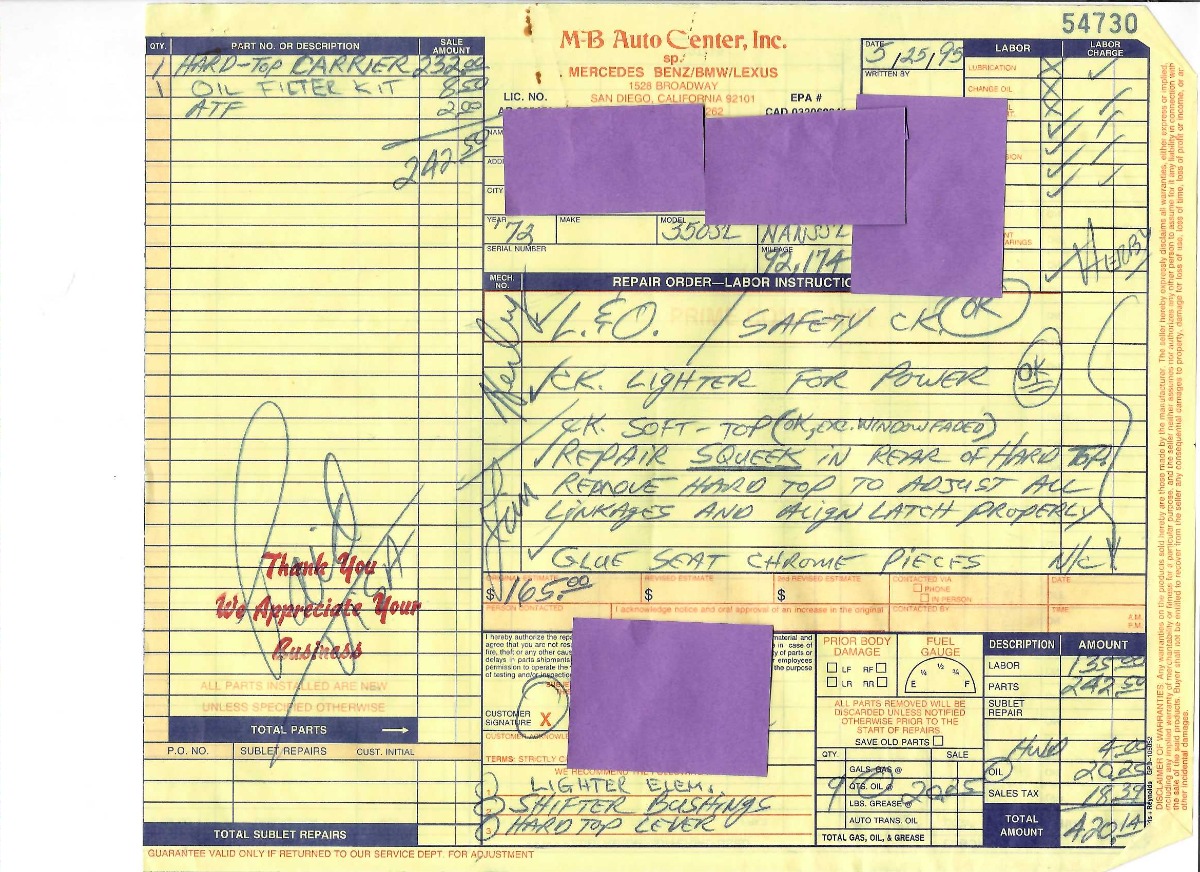 54730
QTY. PART NO. OR DESCRIPTION SALE AMOUNT
1 HARD-TOP CARRIER 232.00
1 OIL FILTER KIT 8.50
ATF 2.00
242.50
M-B Auto Center, Inc.
sp.
MERCEDES BENZ/BMW/LEXUS
1528 BROADWAY
SAN DIEGO, CALIFORNIA 92101
LIC. NO. EPA #
262
DATE 5/25/95
WRITTEN BY
LABOR LABOR CHARGE
LUBRICATION
CHANGE OIL
CITY
YEAR '72 MAKE MODEL 350SL NANSSL
SERIAL NUMBER MILEAGE 92,174
HERBY
MECH. NO. REPAIR ORDER—LABOR INSTRUCTIO
L.&O. / SAFETY CK. OK
CK. LIGHTER FOR POWER OK
CK. SOFT-TOP (OK, EXC. WINDOW FADED)
REPAIR SQUEEK IN REAR OF HARD TOP.
REMOVE HARD TOP TO ADJUST ALL
LINKAGES AND ALIGN LATCH PROPERLY
GLUE SEAT CHROME PIECES N/C
ORIGINAL ESTIMATE REVISED ESTIMATE 2nd REVISED ESTIMATE CONTACTED VIA DATE
$165.00 $ $ PHONE
IN PERSON
PERSON CONTACTED I acknowledge notice and oral approval of an increase in the original CONTACTED BY TIME A.M.
P.M.
Paid
Thank You
We Appreciate Your
Business
ALL PARTS INSTALLED ARE NEW
UNLESS SPECIFIED OTHERWISE
TOTAL PARTS
P.O. NO. SUBLET REPAIRS CUST. INITIAL
TOTAL SUBLET REPAIRS
I hereby authorize the repa
agree that you are not res
fire, theft or any other cau
delays in parts shipments
permission to operate the
of testing and/or inspectio
material and
in case of
ty of parts or
employees
the purpose
CUSTOMER SIGNATURE X
CUSTOMER ACKNOWL
TERMS: STRICTLY C
WE RECOMMEND
1 LIGHTER ELEM.
2 SHIFTER BUSHINGS
3 HARD TOP LEVER
PRIOR BODY DAMAGE
LF RF
LR RR
FUEL GAUGE
E ¼ ½ ¾ F
ALL PARTS REMOVED WILL BE
DISCARDED UNLESS NOTIFIED
OTHERWISE PRIOR TO THE
START OF REPAIRS.
SAVE OLD PARTS
QTY. SALE
GALS. GAS @
9 QTS. OIL @ 20.25
LBS. GREASE @
AUTO TRANS. OIL
TOTAL GAS, OIL, & GREASE
DESCRIPTION AMOUNT
LABOR 135.00
PARTS 242.50
SUBLET REPAIR
4.00
OIL 20.25
SALES TAX 18.39
TOTAL AMOUNT 420.14
GUARANTEE VALID ONLY IF RETURNED TO OUR SERVICE DEPT. FOR ADJUSTMENT
DISCLAIMER OF WARRANTIES: Any warranties on the products sold hereby are those made by the manufacturer. The seller hereby expressly disclaims all warranties, either express or implied,
including any implied warranty of merchantability or fitness for a particular purpose, and the seller neither assumes nor authorizes any other person to assume for it any liability in connection with
the sale of the said products. Buyer shall not be entitled to recover from the seller any consequential damages, damages to property, damages for loss of use, loss of time, loss of profit or income, or any
other incidental damages.